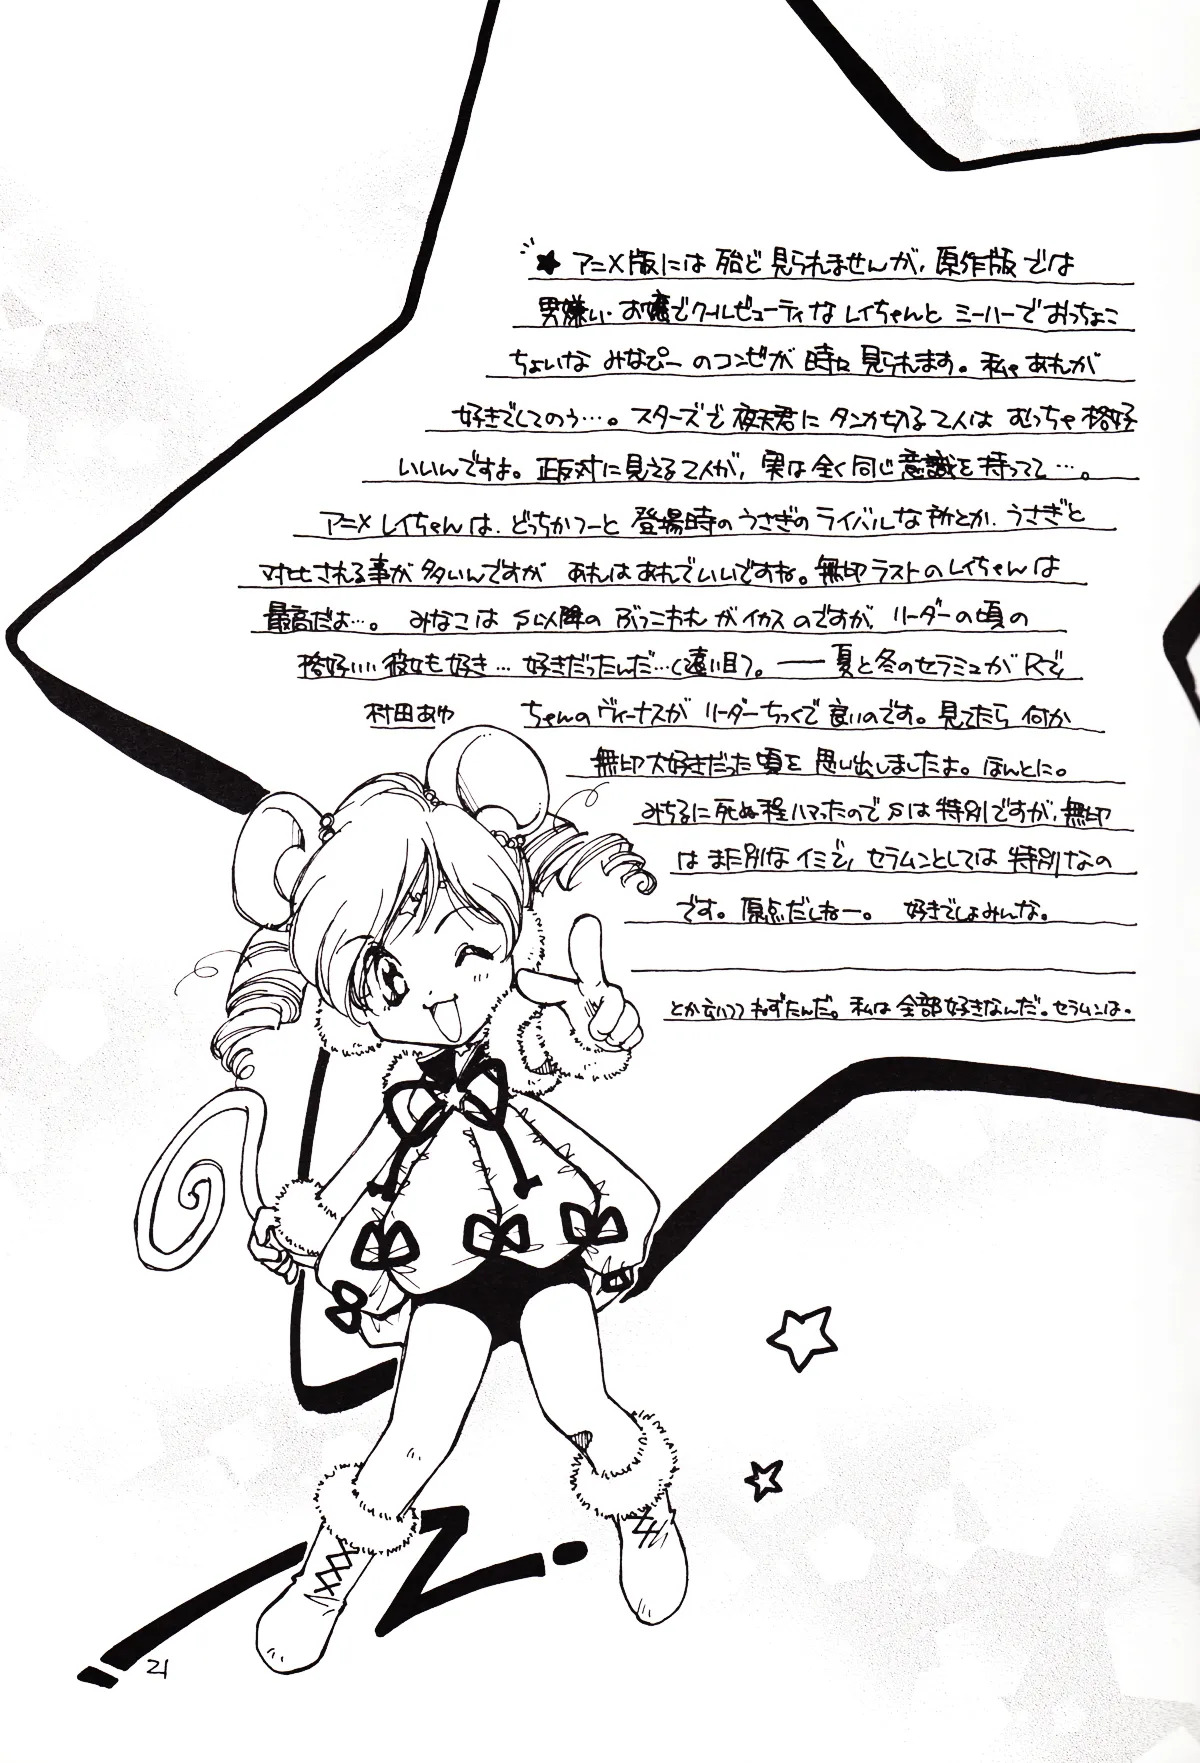 ★ アニメ版には殆ど見られませんが、原作版では
男嫌い・お嬢でクールビューティなレイちゃんとミーハーでおっちょこ
ちょいなみなぴーのコンビが時々見られます。私ゃあれが
好きでしてのう…。スターズで夜天君にタンカ切る2人はむっちゃ格好
いいんですよ。正反対に見える2人が、実は全く同じ意識を持ってて…。
アニメレイちゃんは、どっちかつーと登場時のうさぎのライバルな所とか、うさぎと
対比される事が多いんですが あれはあれでいいですね。無印ラストのレイちゃんは
最高だよ…。 みなこはS以降のぶっこわれがイカスのですが、リーダーの頃の
格好いい彼女も好き…好きだったんだ…(遠い目)。――夏と冬のセラミュがRで、
ちゃんのヴィーナスがリーダーちっくで良いのです。見てたら何か
無印大好きだった頃を思い出しましたよ。ほんとに。
みちるに死ぬ程ハマったのでSは特別ですが、無印
はまた別なイミで、セラムンとしては特別なの
です。原点だしねー。 好きでしょみんな。
とか言いつつねずたんだ。私は全部好きなんだ。セラムンは。
村田あや
21